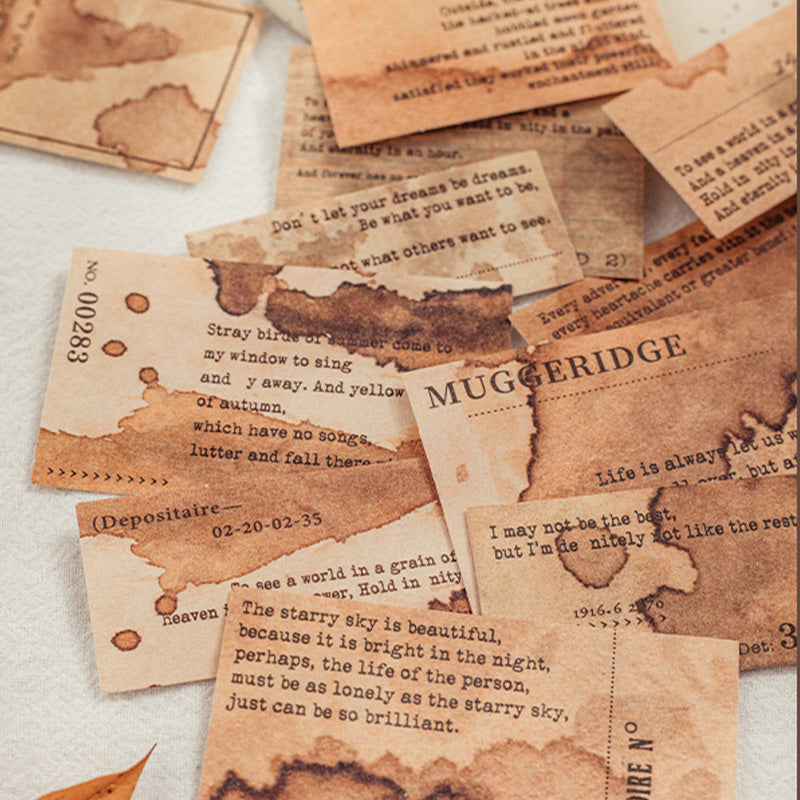 Outside, the
the hacked-at trees
huddled moon garden
whispered and rustled and fluttered
in the night wind,
satisfied they worked their powerful
enchantment still.
To see a world in a
And a heaven in a
Hold in nity in
And eternity
and a
Hold in nity in the pal
And eternity in an hour.
And forever has no
D 2)
Don't let your dreams be dreams.
Be what you want to be,
not what others want to see.
Every adver every fai
every heartache carries with it the
equivalent or greater benefi
No. 00283
Stray birds of summer come to
my window to sing
and y away. And yellow
of autumn,
which have no songs,
lutter and fall there
>>>>>>>>>>>
MUGGERIDGE
Life is always let us w
all over, but a
(Depositaire—
02-20-02-35
To see a world in a grain of
heaven ower, Hold in nity
I may not be the best,
but I'm de nitely not like the rest
1916.6 2970
>>>>>>>>>>
Det: 3
The starry sky is beautiful,
because it is bright in the night,
perhaps, the life of the person,
must be as lonely as the starry sky,
just can be so brilliant.
OIRE Nº